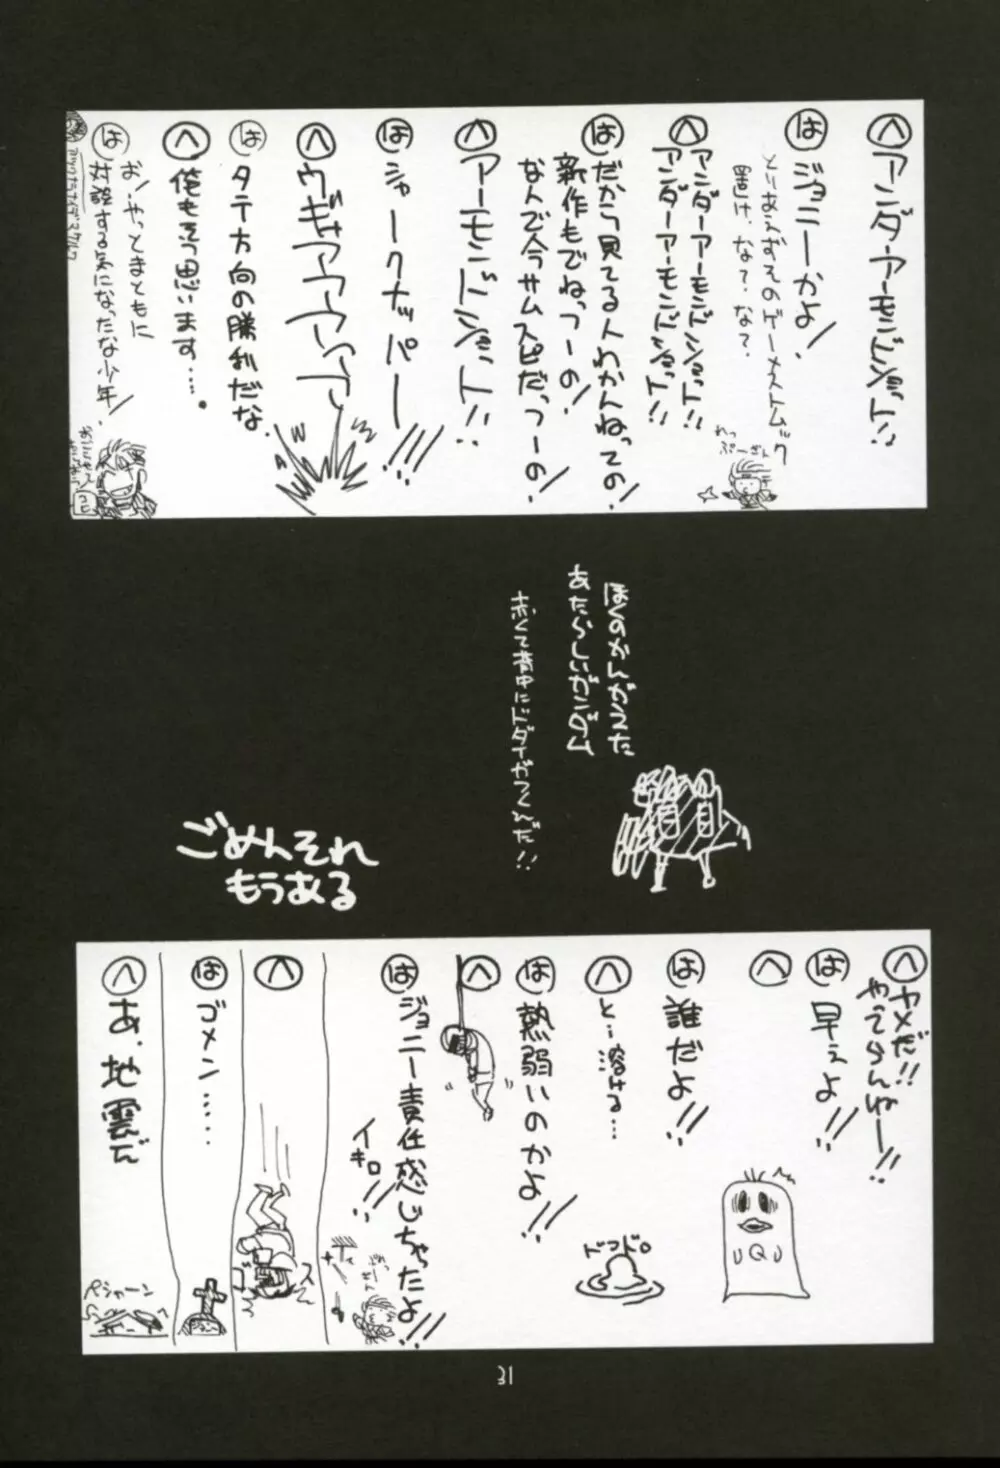 へ アンダーアーモンドショット!!
は ジョニーかよ!
とりあえずそのゲーメストムック
置け、な?な?
れっ
ぷーざん
へ アンダーアーモンドショット!!
アンダーアーモンドショット!!
は だから見てる人わかんねっての!
新作もでねっつーの!
なんで今サムスピだっつーの!
へ アーモンドショット!!
は シャークナッパー!!!
へ ウギャアアアア
は タテ方向の勝利だな
へ 俺もそう思います……。
は お!やっとまともに
対談する気になったな少年!
ぼくのかんがえた
あたらしいガンダム
赤くて背中にドダイがつくんだ!!
ごめんそれ
もうある
へ ヤメだ!!
やってらんねー!!
は 早ぇよ!!
へ
QQQ
は 誰だよ!!
へ と…溶ける…
ドロドロ
は 熱弱いのかよ!!
へ
は ジョニー責任感じちゃったよ!!
イキロ!!
へ
は ゴメン……
へ あ、地震だ
ペシャーン
31